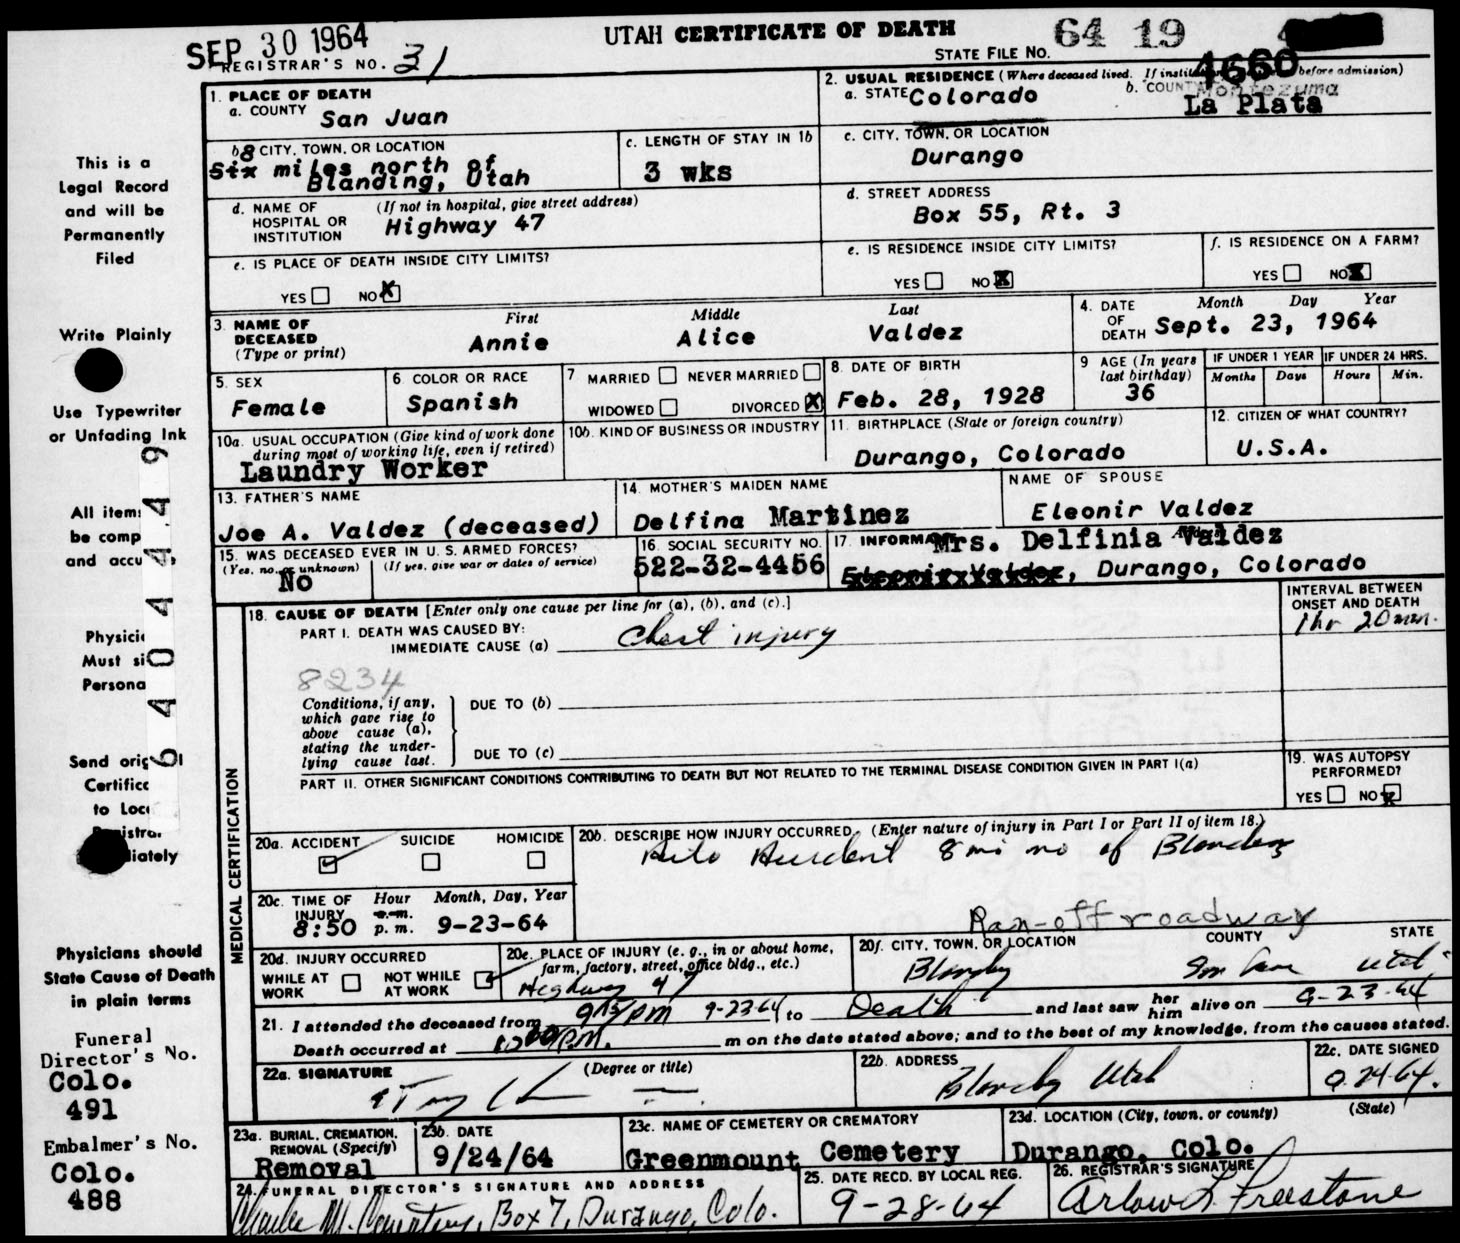 SEP 30 1964
UTAH CERTIFICATE OF DEATH
64 19
STATE FILE NO.
4660
REGISTRAR'S NO. 31
1. PLACE OF DEATH
a. COUNTY San Juan
2. USUAL RESIDENCE (Where deceased lived. If before admission)
a. STATE Colorado
b. COUNTY Montezuma
La Plata
b. CITY, TOWN, OR LOCATION
8 Six miles north of
Blanding, Utah
c. LENGTH OF STAY IN 1b
3 wks
c. CITY, TOWN, OR LOCATION
Durango
d. NAME OF HOSPITAL OR INSTITUTION (If not in hospital, give street address)
Highway 47
d. STREET ADDRESS
Box 55, Rt. 3
e. IS PLACE OF DEATH INSIDE CITY LIMITS?
YES NO X
e. IS RESIDENCE INSIDE CITY LIMITS?
YES NO X
f. IS RESIDENCE ON A FARM?
YES NO X
3. NAME OF DECEASED (Type or print)
First Middle Last
Annie Alice Valdez
4. DATE OF DEATH Month Day Year
Sept. 23, 1964
5. SEX
Female
6. COLOR OR RACE
Spanish
7. MARRIED NEVER MARRIED
WIDOWED DIVORCED X
8. DATE OF BIRTH
Feb. 28, 1928
9 AGE (In years last birthday)
36
IF UNDER 1 YEAR
Months Days
IF UNDER 24 HRS.
Hours Min.
10a. USUAL OCCUPATION (Give kind of work done during most of working life, even if retired)
Laundry Worker
10b. KIND OF BUSINESS OR INDUSTRY
11. BIRTHPLACE (State or foreign country)
Durango, Colorado
12. CITIZEN OF WHAT COUNTRY?
U.S.A.
13. FATHER'S NAME
Joe A. Valdez (deceased)
14. MOTHER'S MAIDEN NAME
Delfina Martinez
NAME OF SPOUSE
Eleonir Valdez
15. WAS DECEASED EVER IN U.S. ARMED FORCES?
(Yes, no, or unknown) (If yes, give war or dates of service)
No
16. SOCIAL SECURITY NO.
522-32-4456
17. INFORMANT Mrs. Delfinia Valdez
Eleonir Valdez, Durango, Colorado
18. CAUSE OF DEATH [Enter only one cause per line for (a), (b), and (c).]
PART I. DEATH WAS CAUSED BY:
IMMEDIATE CAUSE (a) Chest injury
INTERVAL BETWEEN ONSET AND DEATH
1 hr 20 min.
8234
Conditions, if any, which gave rise to above cause (a), stating the underlying cause last.
DUE TO (b)
DUE TO (c)
PART II. OTHER SIGNIFICANT CONDITIONS CONTRIBUTING TO DEATH BUT NOT RELATED TO THE TERMINAL DISEASE CONDITION GIVEN IN PART I(a)
19. WAS AUTOPSY PERFORMED?
YES NO X
MEDICAL CERTIFICATION
20a. ACCIDENT SUICIDE HOMICIDE
20b. DESCRIBE HOW INJURY OCCURRED. (Enter nature of injury in Part I or Part II of item 18.)
Auto Accident 8 mi no of Blanding
Ran-off roadway
20c. TIME OF INJURY Hour Month, Day, Year
a.m.
8:50 p.m. 9-23-64
20d. INJURY OCCURRED
WHILE AT WORK NOT WHILE AT WORK
20e. PLACE OF INJURY (e. g., in or about home, farm, factory, street, office bldg., etc.)
Highway 47
20f. CITY, TOWN, OR LOCATION COUNTY STATE
Blanding San Juan Utah
21. I attended the deceased from 9:15 PM 9-23-64 to Death and last saw her him alive on 9-23-64
Death occurred at 10:00 P.M. m on the date stated above; and to the best of my knowledge, from the causes stated.
22a. SIGNATURE (Degree or title)
22b. ADDRESS
Blanding Utah
22c. DATE SIGNED
9-24-64.
23a. BURIAL, CREMATION, REMOVAL (Specify)
Removal
23b. DATE
9/24/64
23c. NAME OF CEMETERY OR CREMATORY
Greenmount Cemetery
23d. LOCATION (City, town, or county) (State)
Durango, Colo.
24. FUNERAL DIRECTOR'S SIGNATURE AND ADDRESS
Charles M. Box 7, Durango, Colo.
25. DATE RECD. BY LOCAL REG.
9-28-64
26. REGISTRAR'S SIGNATURE
Arlow L. Freestone
This is a
Legal Record
and will be
Permanently
Filed
Write Plainly
Use Typewriter
or Unfading Ink
All items
be comp
and accu
Physici
Must si
Persona
Send orig
Certific
to Loc
Registrar
Immediately
640 4449
Physicians should
State Cause of Death
in plain terms
Funeral
Director's No.
Colo.
491
Embalmer's No.
Colo.
488